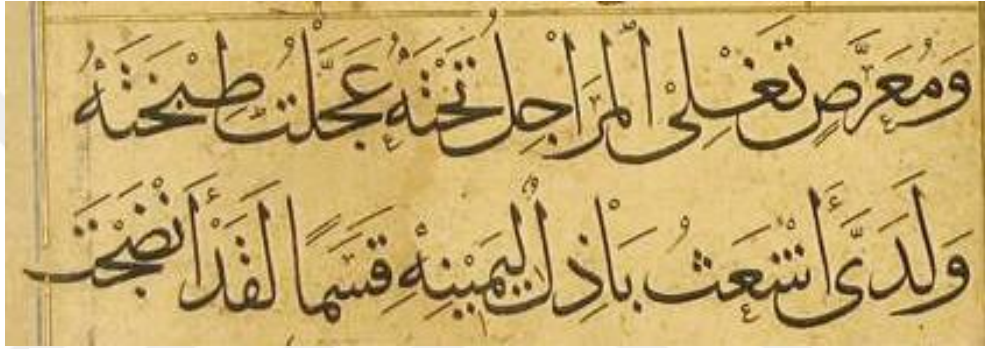 وَمُعَرَّصٍ تَغْلِي الْمَرَاجِلُ تَحْتَهُ عَجَّلْتُ طَبْخَتَهُ
وَلَدَيَّ أَشْعَثُ بَاذِلٌ لِيَمِينِهِ قَسَمًا لَقَدْ أَنْضَجْتَ